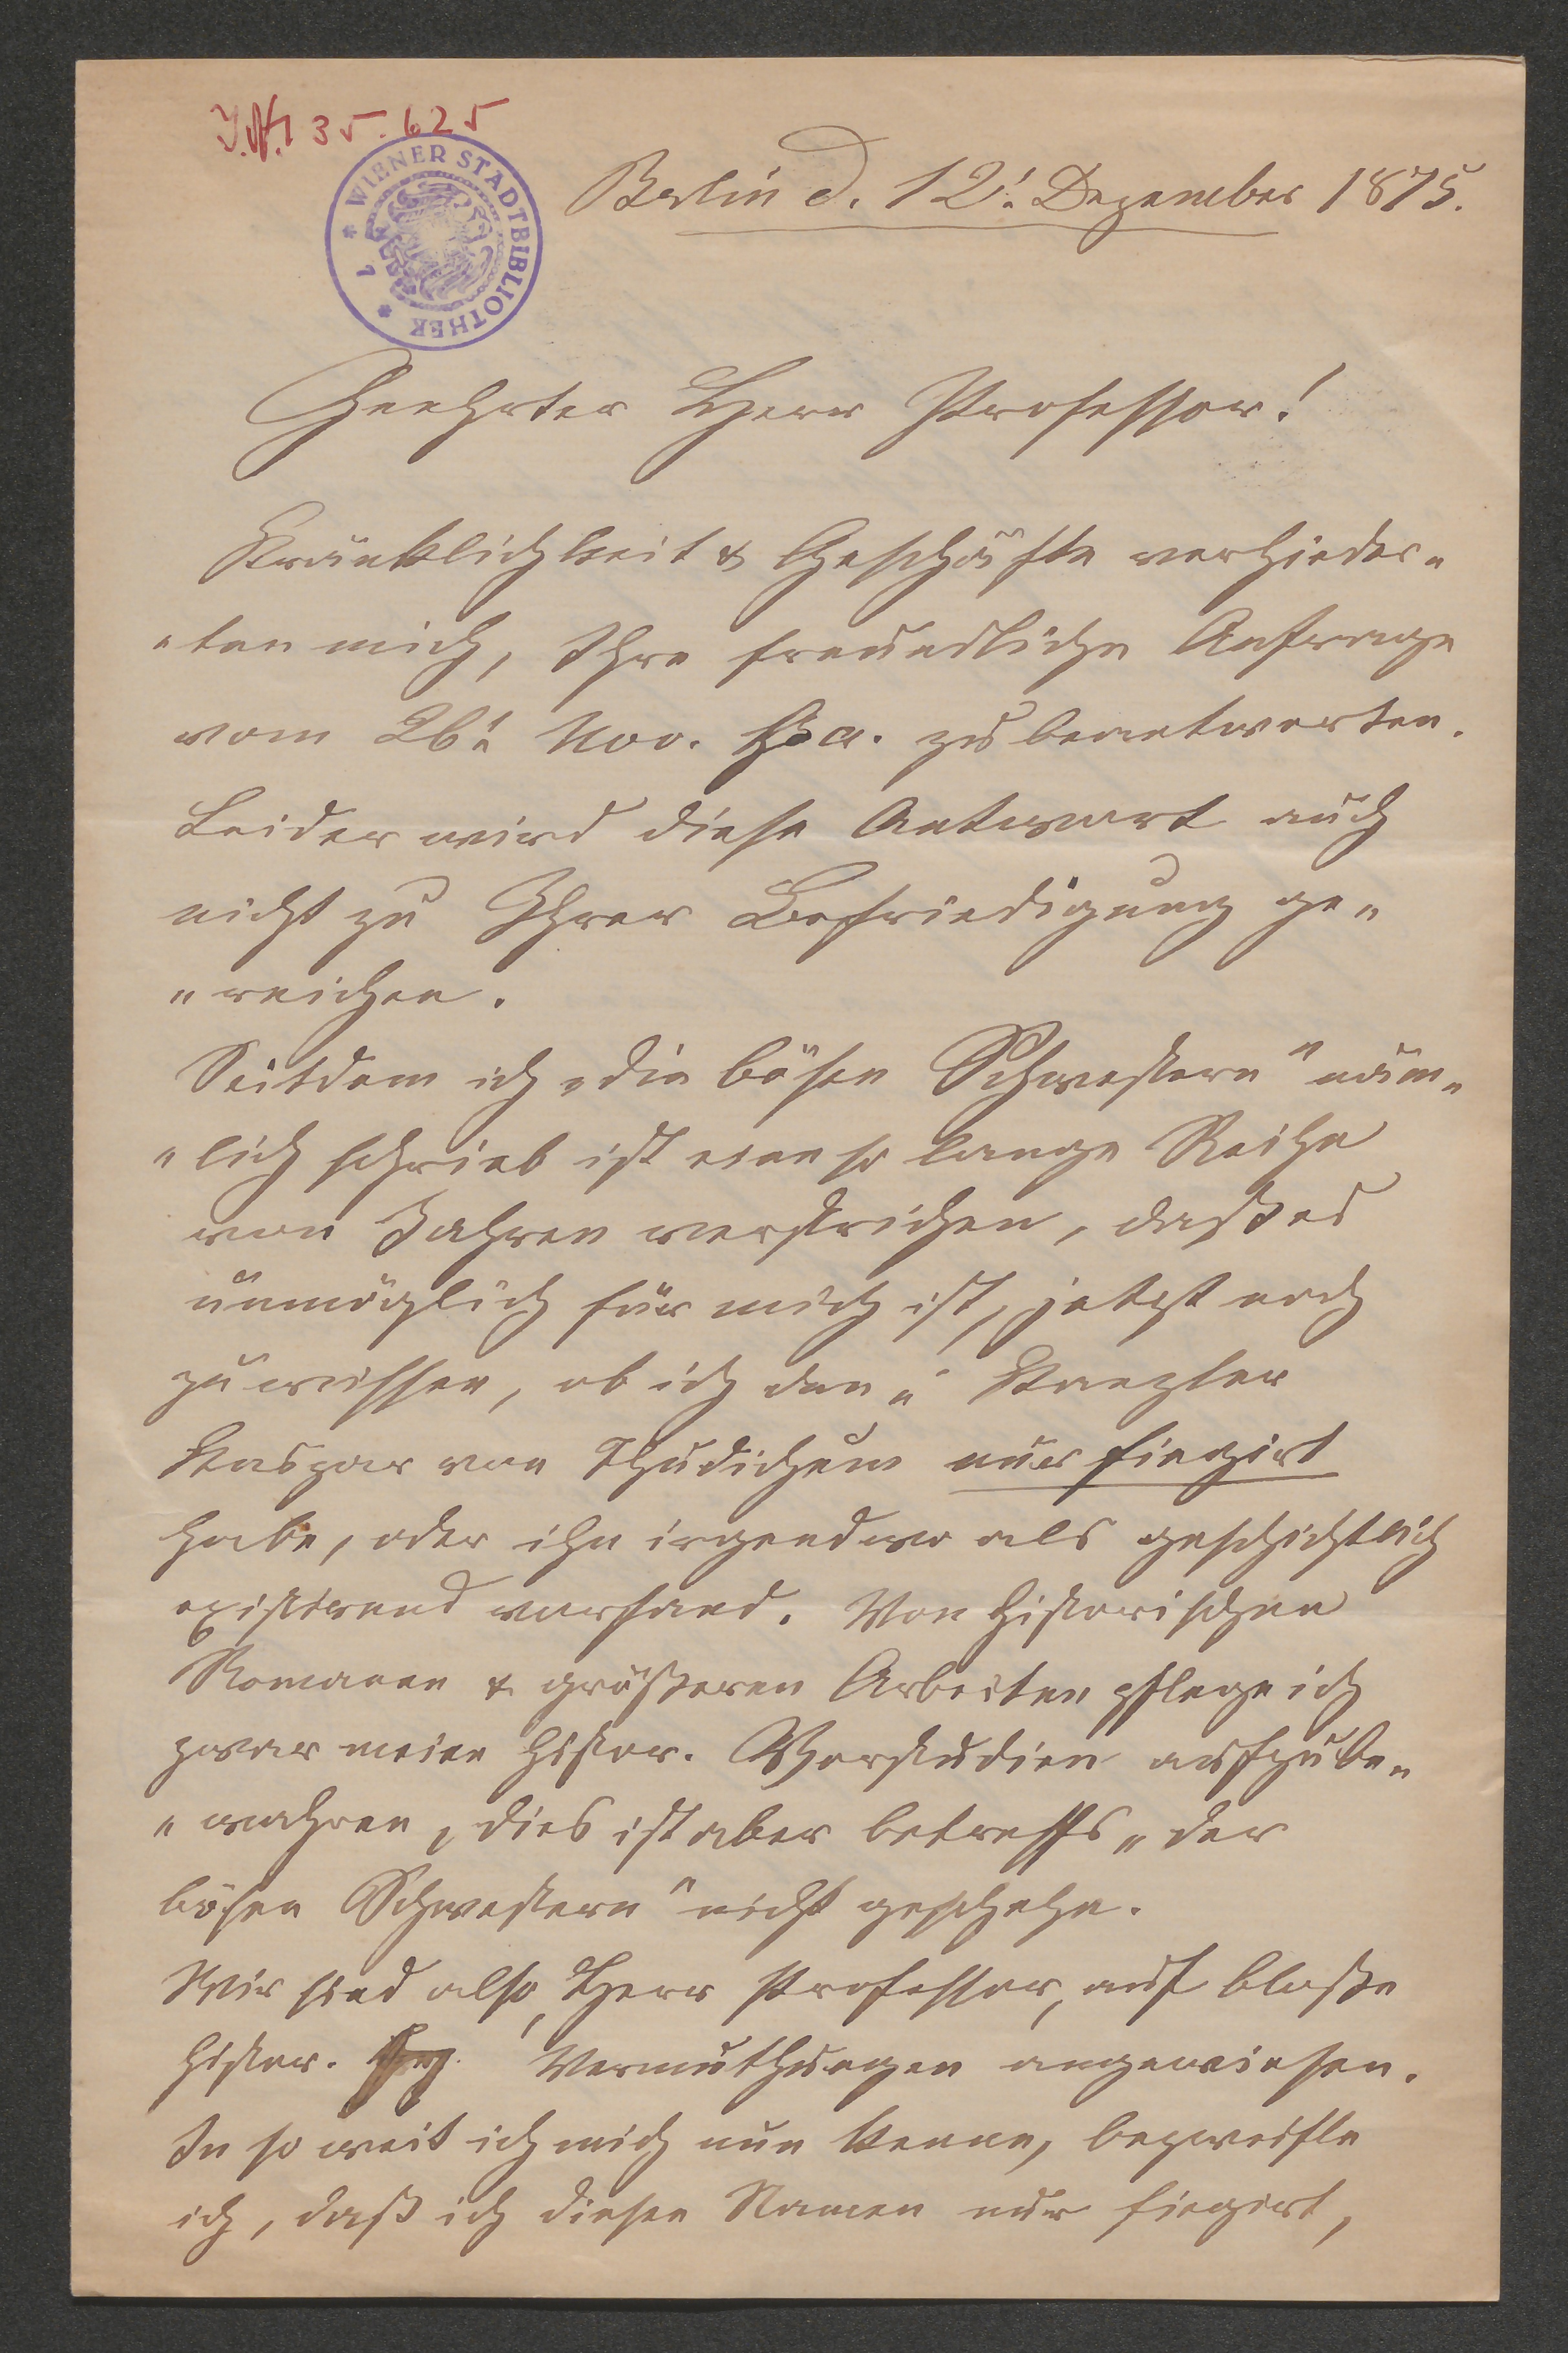 J.N. 35.625
WIENER STADTBIBLIOTHEK
7
Berlin d. 12! Dezember 1875.
Geehrter Herr Professor!
Kränklichkeit & Geschäfte verhinder„
„ten mich, Ihre freundliche Anfrage
vom 26! Nov. a. zu beantworten.
Leider wird diese Antwort auch
nicht zu Ihrer Befriedigung ge„
„reichen.
Seitdem ich „die bösen Schwestern" näm„
„lich schrieb ist eine so lange Reihe
von Jahren verstrichen, daß es
unmöglich für mich ist, jetzt noch
zu wissen, ob ich den Kanzler
Kaspar von Thudichum nur fingirt
habe, oder ihn irgendwo als geschichtlich
existirend vorfand. Von historischen
Romanen & größeren Arbeiten pflege ich
zwar meine histor. Vorstudien aufzube„
„wahren, dies ist aber betreffs „der
bösen Schwestern" nicht geschehn.
Wir sind also, Herr Professor, auf bloße
histor. Vermuthungen angewiesen.
In so weit ich mich nun kenne, bezweifle
ich, daß ich diesen Namen nur fingirt,